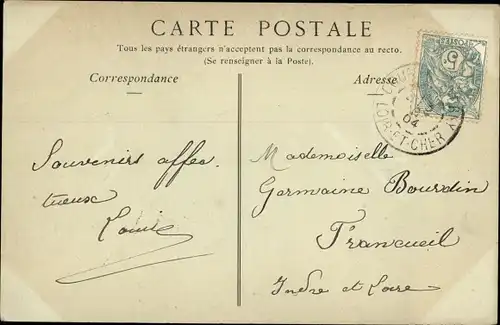 CARTE POSTALE
Tous les pays étrangers n'acceptent pas la correspondance au recto.
(Se renseigner à la Poste).
Correspondance
Adresse
Souvenirs affec
tueux
Louis
Mademoiselle
Germaine Bourdin
Francueil
Indre et Loire
04
LOIR-ET-CHER
5